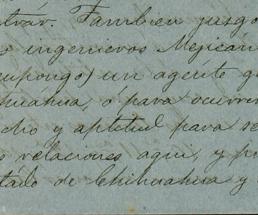 trar. Tambien juzgo
s ingenieros Mejican
supongo) un agente q
huahua, ó para ocurrir
cho y aptitud para se
s relaciones aqui, y p
tado de Chihuahua y